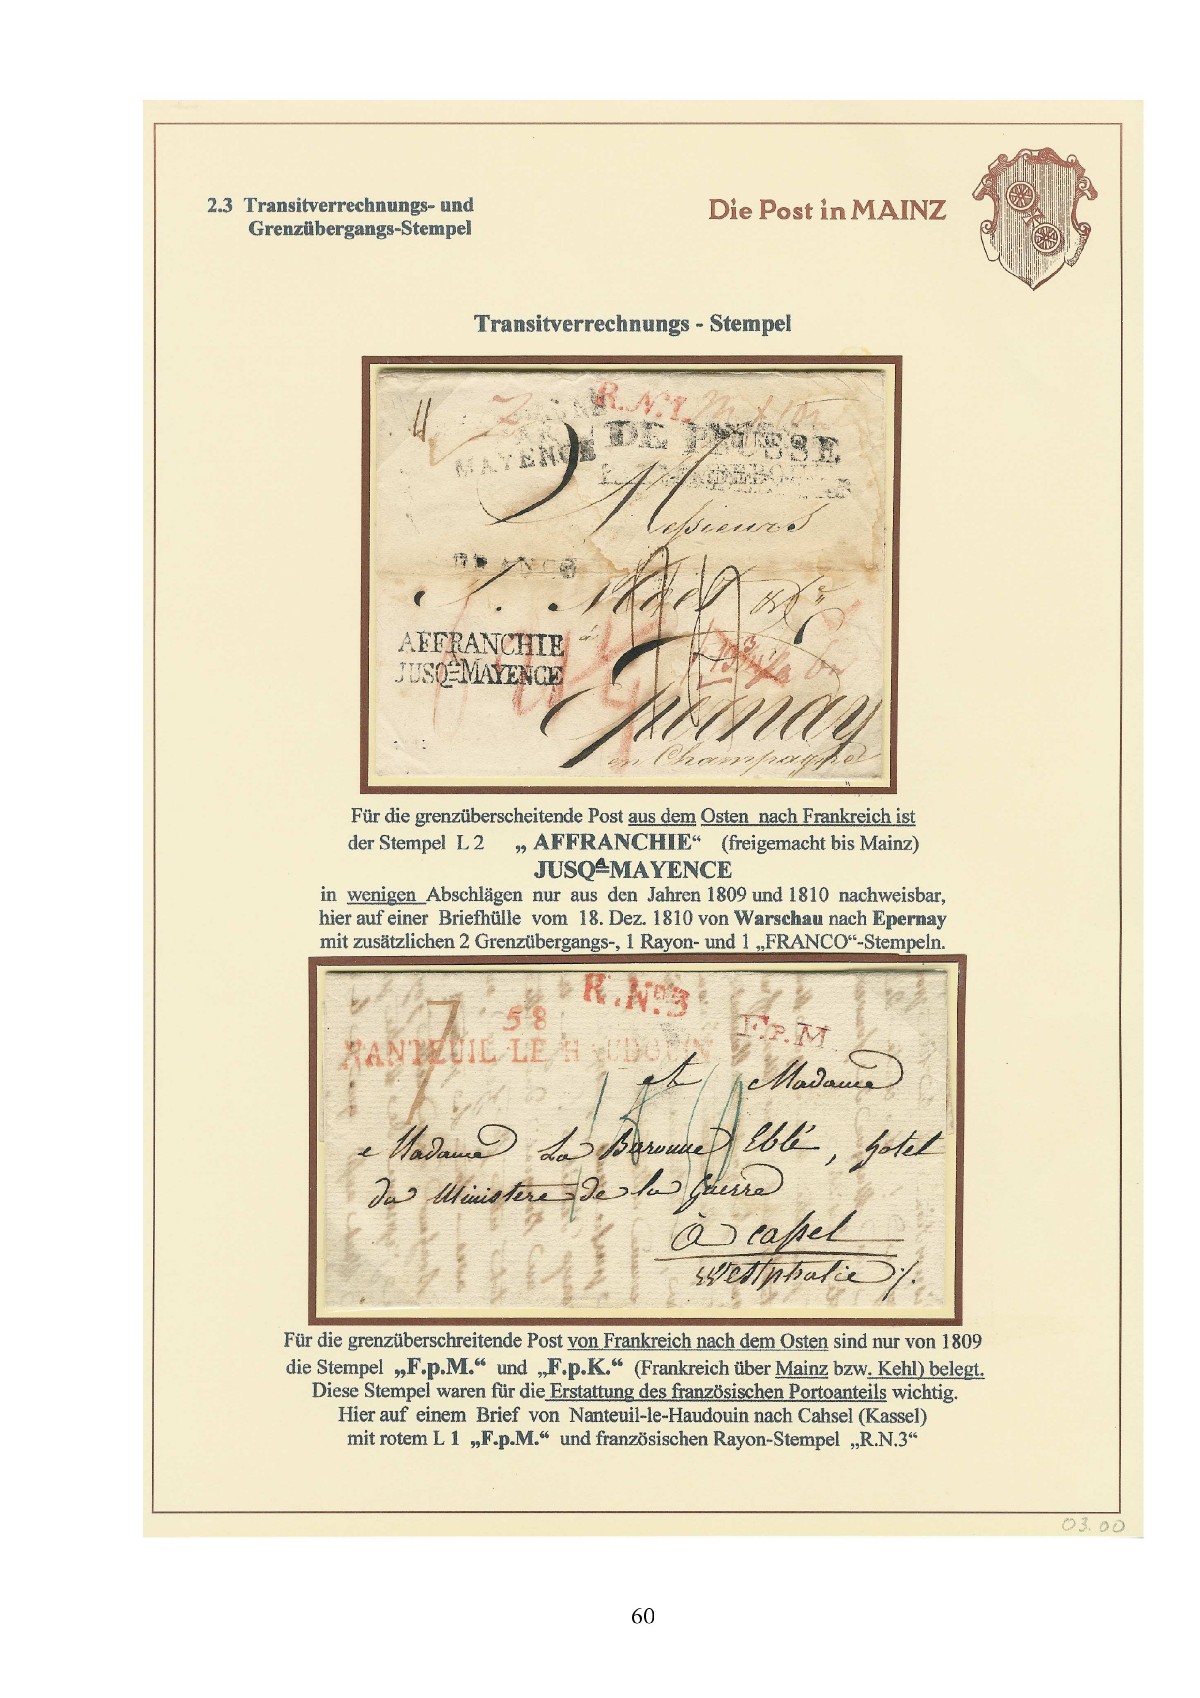 2.3 Transitverrechnungs- und
Grenzübergangs-Stempel
Die Post in MAINZ
Transitverrechnungs - Stempel
R.N.1.
MAYENCE
DE PRUSSE
Messieurs
FRANCO
AFFRANCHIE
JUSQ=A=MAYENCE
Epernay
en Champagne
Für die grenzüberscheitende Post aus dem Osten nach Frankreich ist
der Stempel L 2 „ AFFRANCHIE“ (freigemacht bis Mainz)
JUSQ=A=MAYENCE
in wenigen Abschlägen nur aus den Jahren 1809 und 1810 nachweisbar,
hier auf einer Briefhülle vom 18. Dez. 1810 von Warschau nach Epernay
mit zusätzlichen 2 Grenzübergangs-, 1 Rayon- und 1 „FRANCO“-Stempeln.
R.No.3
58
F.P.M.
NANTEUIL-LE-HAUDOUIN
et Madame
e Madame La Baronne Eblé, hotel
du Ministere de la Guerre
à caſsel
Westphalie ⁒.
Für die grenzüberschreitende Post von Frankreich nach dem Osten sind nur von 1809
die Stempel „F.p.M.“ und „F.p.K.“ (Frankreich über Mainz bzw. Kehl) belegt.
Diese Stempel waren für die Erstattung des französischen Portoanteils wichtig.
Hier auf einem Brief von Nanteuil-le-Haudouin nach Cahsel (Kassel)
mit rotem L 1 „F.p.M.“ und französischen Rayon-Stempel „R.N.3“
03.00
60